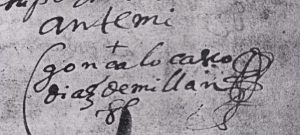 ante mi
gonçalo carco
diaz de millan